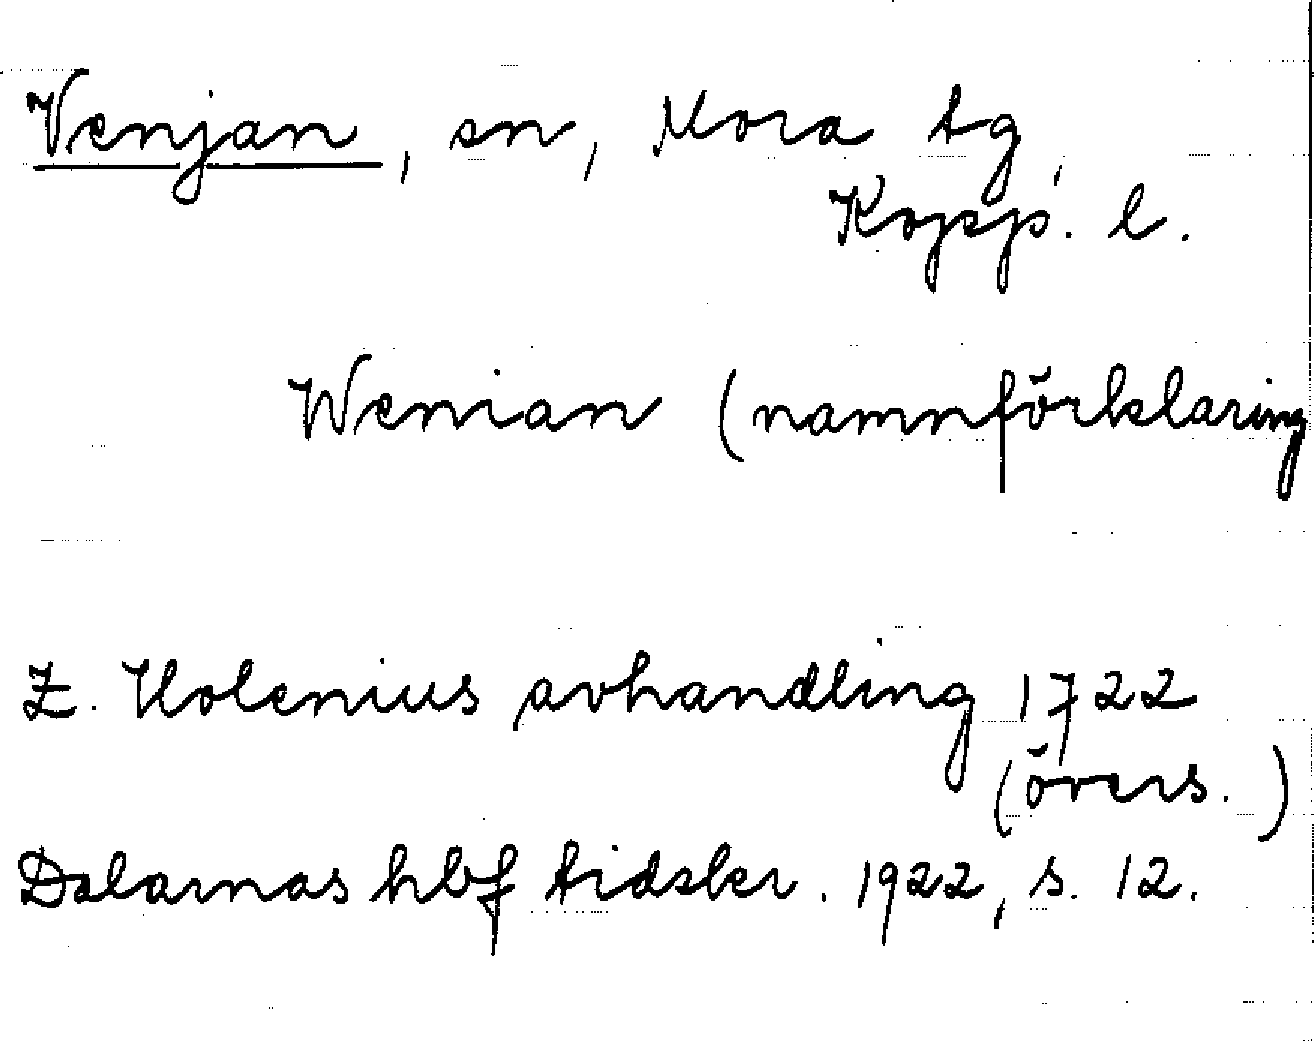 Venjan, sn, Mora tg,
Kopp. l.
Wenian (namnförklaring
Z. Holenius avhandling 1722
(övers.)
Dalarnas hbf tidskr. 1922, s. 12.